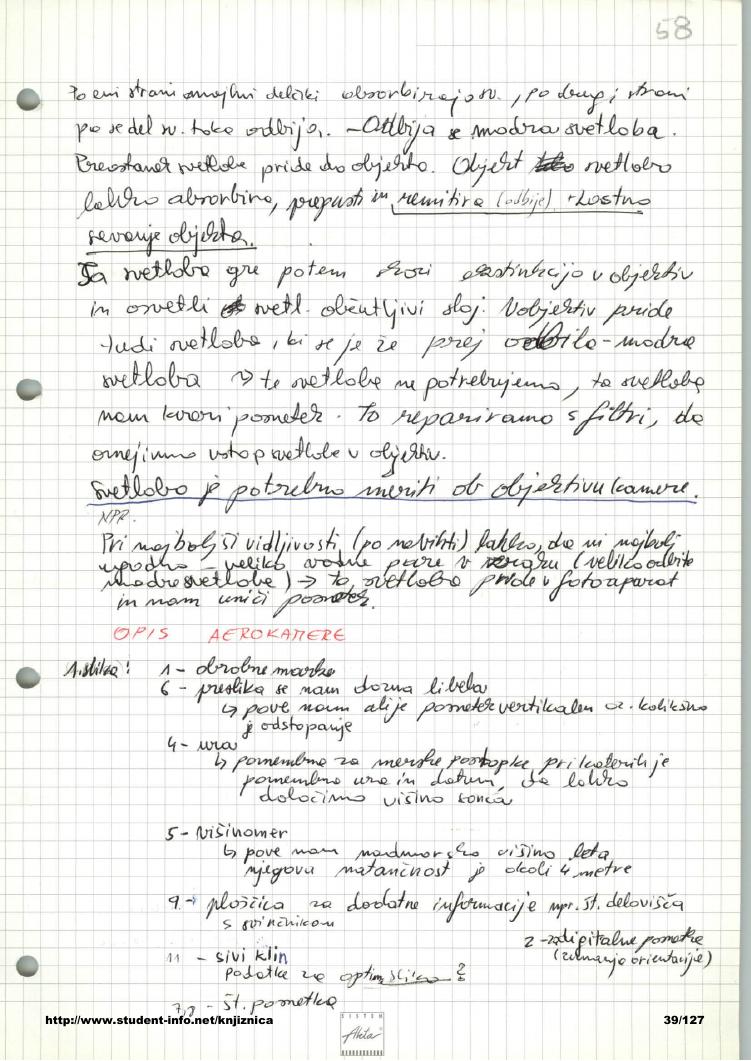 58
Po eni strani omejini delčki absorbirajo sv., po drugi strani
pa se del sv. toka odbija. - Odbija se modra svetloba.
Preostanek svetlobe pride do objekta. Objekt svetlobo
lahko absorbira, prepusti in remitira (odbije) - lastno
sevanje objekta.
Ta svetloba gre potem skozi v objektiv
in osvetli svetl. občutljivi sloj. V objektiv pride
tudi svetloba, ki se je že prej odbila - modra
svetloba → te svetlobe ne potrebujemo, ta svetloba
nam kvari posnetek. To repariramo s filtri, da
omejimo vstop svetlobe v objektiv.
Svetlobo je potrebno meriti ob objektivu kamere.
NPR.
Pri najboljši vidljivosti (po nevihti) lahko, da ni najbolj
ugodno - veliko vodne pare v zraku (veliko odbite
modre svetlobe) → ta svetloba pride v fotoaparat
in nam uniči posnetek.
OPIS AEROKAMERE
1. slika: 1 - obrobne marke
6 - preslika se nam dozna libela
↳ pove nam ali je posnetek vertikalen oz. kolikšno
je odstopanje
4 - ura
↳ pomembna za merske postopke pri katerih je
pomembna ura in datum, da lahko
določimo višino sonca
5 - višinomer
↳ pove nam nadmorsko višino leta,
njegova natančnost je okoli 4 metre
9 → ploščica za dodatne informacije npr. št. delovišča
s svinčnikom
2 - za digitalne posnetke
(zunanja orientacije)
11 - sivi klin
podatka za optim. sliko?
7,8 - št. posnetka
http://www.student-info.net/knjiznica
39/127
SISTEM
Akta